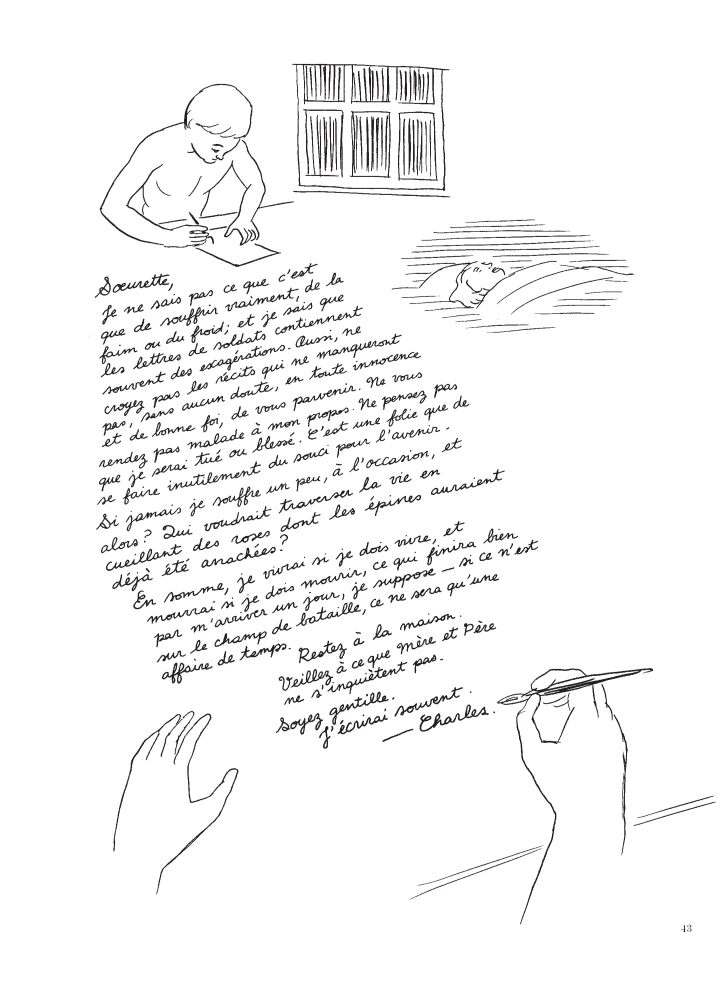 Sœurette,
Je ne sais pas ce que c'est
que de souffrir vraiment, de la
faim ou du froid; et je sais que
les lettres de soldats contiennent
souvent des exagérations. Aussi, ne
croyez pas les récits qui ne manqueront
pas, sans aucun doute, en toute innocence
et de bonne foi, de vous parvenir. Ne vous
rendez pas malade à mon propos. Ne pensez pas
que je serai tué ou blessé. C'est une folie que de
se faire inutilement du souci pour l'avenir.
Si jamais je souffre un peu, à l'occasion, et
alors? Qui voudrait traverser la vie en
cueillant des roses dont les épines auraient
déjà été arrachées?
En somme, je vivrai si je dois vivre, et
mourrai si je dois mourir, ce qui finira bien
par m'arriver un jour, je suppose — si ce n'est
sur le champ de bataille, ce ne sera qu'une
affaire de temps.
Restez à la maison.
Veillez à ce que Mère et Père
ne s'inquiètent pas.
Soyez gentille.
J'écrirai souvent.
— Charles.
43